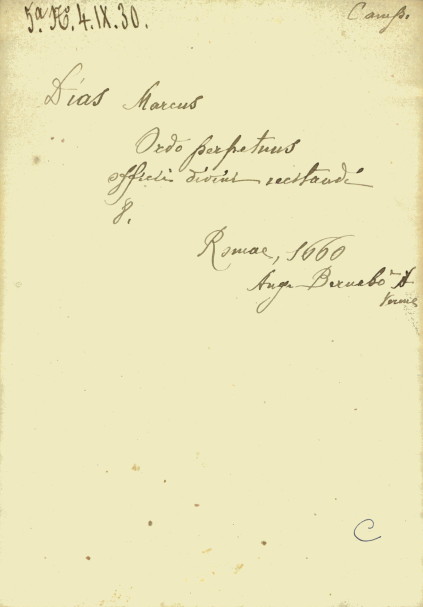 5.ª H.º 4.IX.30.
Camp.
Dias Marcus
Ordo perpetuus
officii divini recitandi
8.
Romae, 1660
Ang. Bernabò A
Verme
C